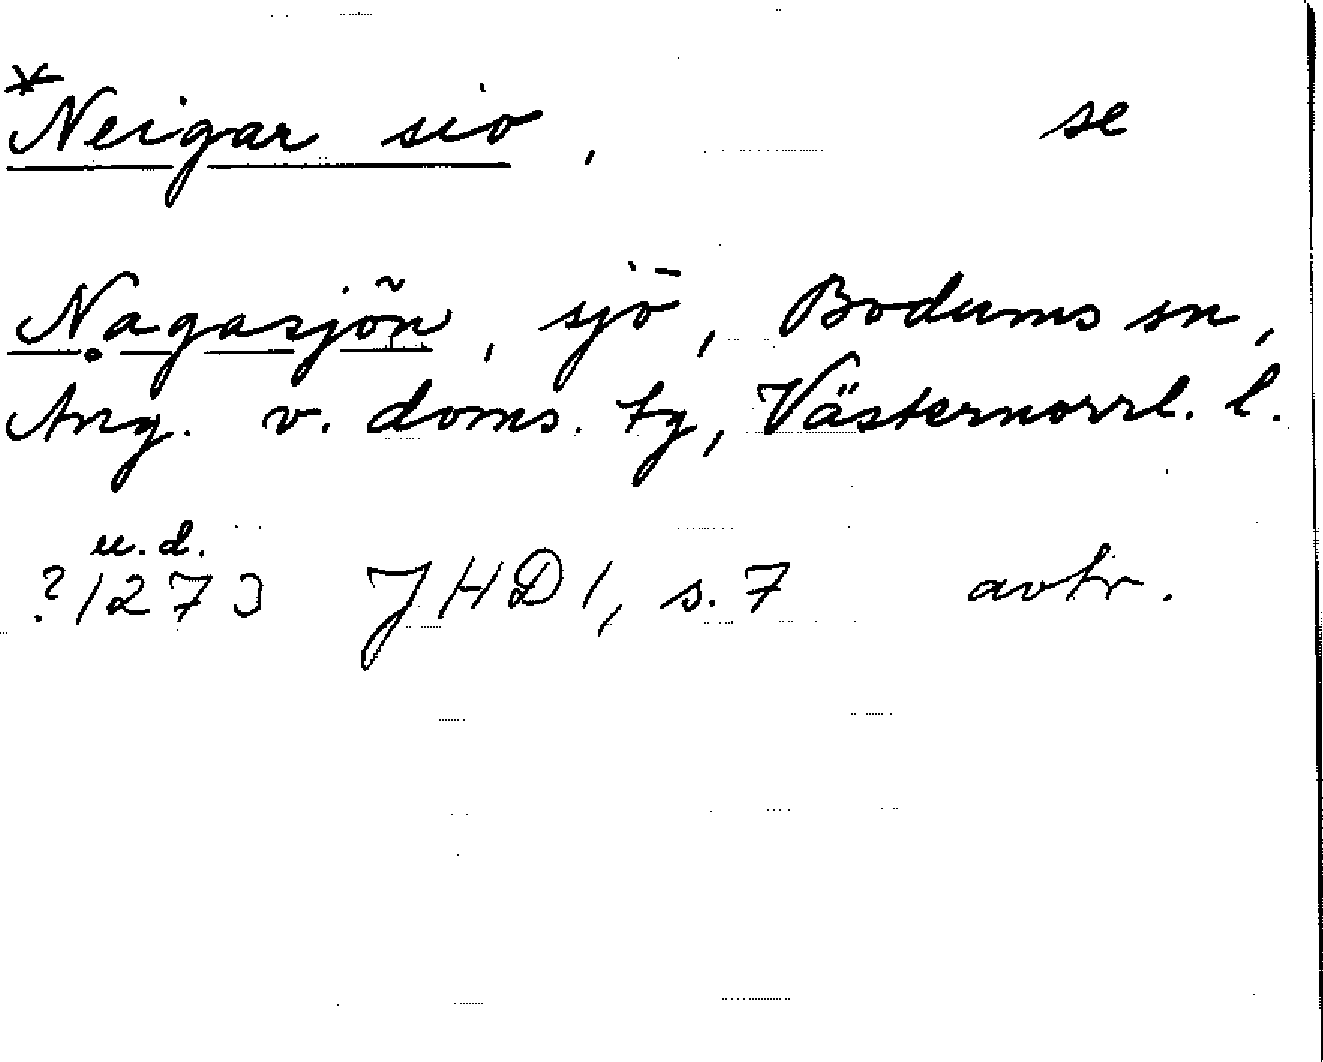 *Neigar sio, se
Nagasjön, sjö, Bodums sn,
Ång. v. doms. tg, Västernorrl. l.
u.d.
?1273 JHD 1, s. 7 avkr.